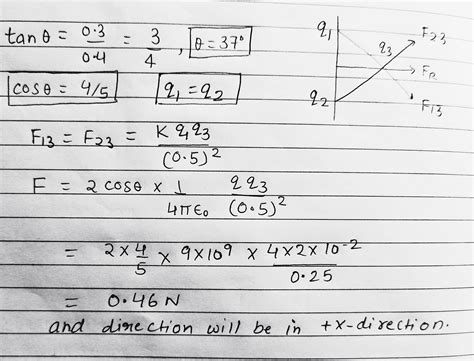 tanθ = 0.3/0.4 = 3/4, θ = 37°
cosθ = 4/5 q₁ = q₂
q₁
q₂
q₃
F₂₃
F_R
F₁₃
F₁₃ = F₂₃ = K q₁q₃/(0.5)²
F = 2 cosθ × 1/4πε₀ q q₃/(0.5)²
= 2×4/5 × 9×10⁹ × 4×2×10⁻²/0.25
= 0.46 N
and direction will be in +x-direction.